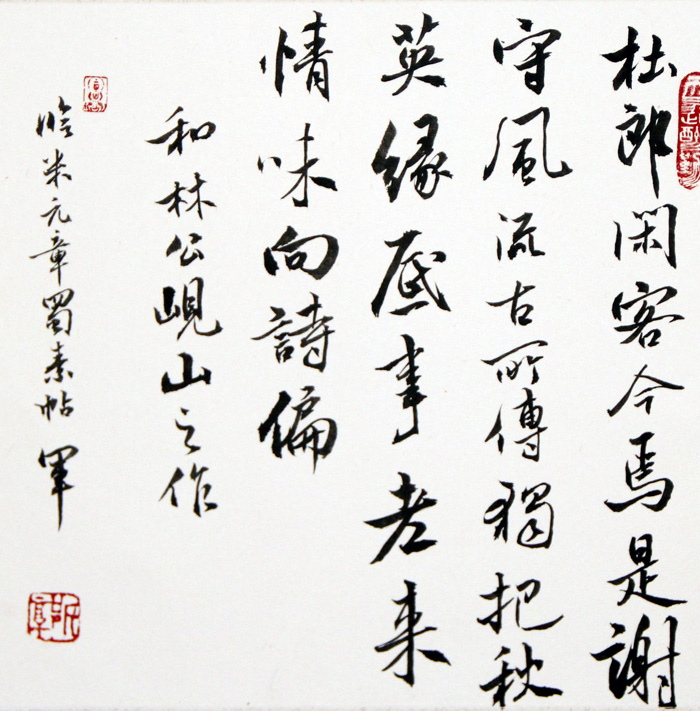 杜郎閑客今焉是謝
守風流古所傳獨把秋
英緣底事老来
情味向詩偏
和林公峴山之作
臨米元章蜀素帖 軍